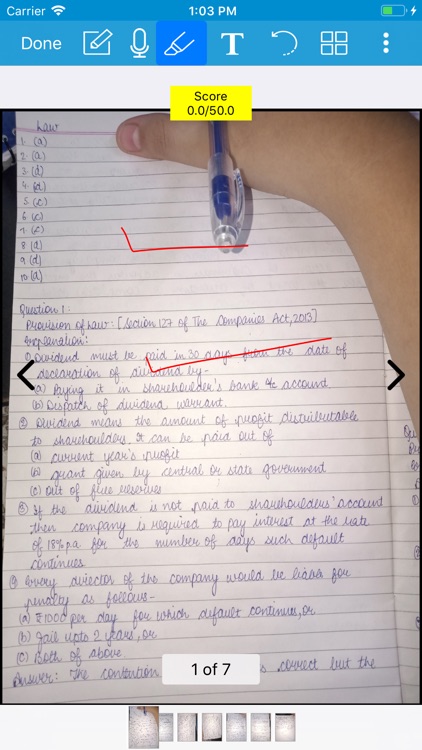 Carrier 1:03 PM
Done T
Score
0.0/50.0
Law
1. (a)
2. (a)
3. (d)
4. (d)
5. (c)
6. (c)
7. (c)
8 (d)
9 (d)
10 (a)
Question 1:
Provision of Law: [Section 127 of The Companies Act, 2013]
Explanation:
① Dividend must be paid in 30 days from the date of
declaration of dividend by-
(a) Paying it in shareholder's bank a/c account
(b) Dispatch of dividend warrant.
② Dividend means the amount of profit distributable
to shareholders. It can be paid out of
(a) current year's profit
(b) grant given by central or state government
(c) Out of free reserves
③ If the dividend is not paid to shareholders' account
then company is required to pay interest at the rate
of 18% p.a. for the number of days such default
continues
④ Every director of the company would be liable for
penalty as follows-
(a) ₹1000 per day for which default continues, or
(b) Jail upto 2 years, or
(c) Both of above
Answer: The contention correct but the
1 of 7